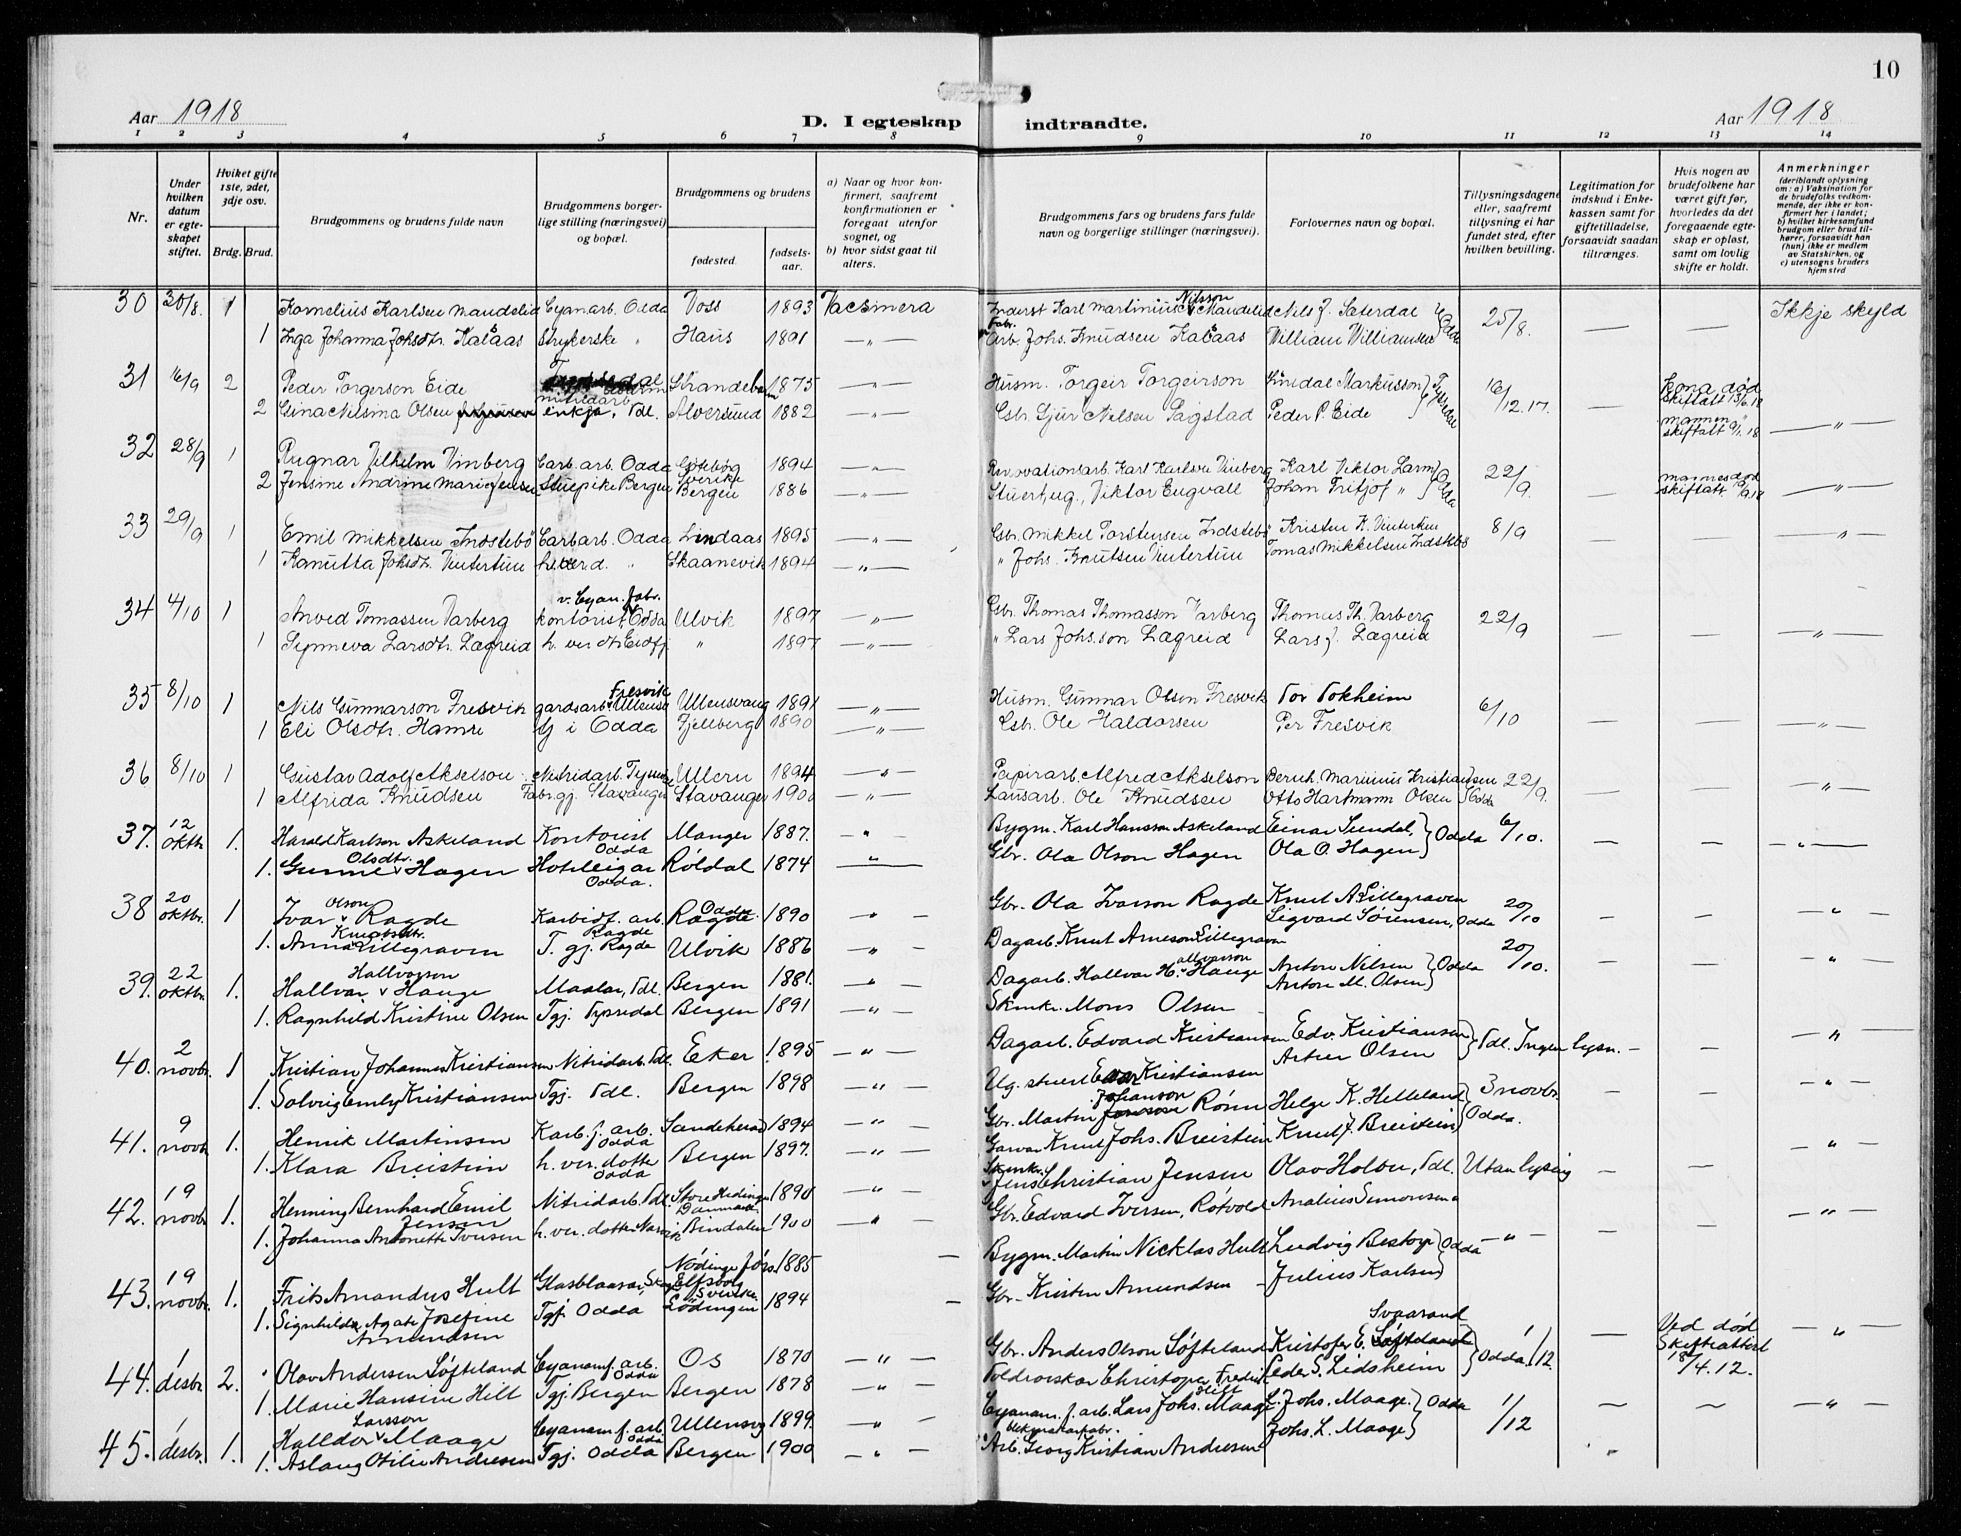 10
Aar 1918
D. I egteskap indtraadte.
Aar 1918
1 2 3 4 5 6 7 8 9 10 11 12 13 14
Nr.
Under hvilken datum er egteskapet stiftet.
Hviket gifte 1ste, 2det, 3dje osv.
Brdg. Brud.
Brudgommens og brudens fulde navn
Brudgommens borgerlige stilling (næringsvei) og bopæl.
Brudgommens og brudens
fødested.
fødselsaar.
a) Naar og hvor konfirmert, saafremt konfirmationen er foregaat utenfor sognet, og
b) hvor sidst gaat til alters.
Brudgommens fars og brudens fars fulde navn og borgerlige stillinger (næringsvei).
Forlovernes navn og bopæl.
Tillysningsdagene eller, saafremt tillysning ei har fundet sted, efter hvilken bevilling.
Legitimation for indskud i Enkekassen samt for giftetilladelse, forsaavidt saadan tiltrænges.
Hvis nogen av brudefolkene har været gift før, hvorledes da det foregaaende egteskap er opløst, samt om lovlig skifte er holdt.
Anmerkninger
(deriblandt oplysning om: a) Vaksination for de brudefolks vedkommende, der ikke er konfirmert her i landet; b) hvilket kirkesamfund brudgom eller brud tilhører, forsaavidt han (hun) ikke er medlem av Statskirken, og c) utensogns bruders hjemsted
30 30/8. 1 Kornelius Karlsen Mandelid Cyanarb. Odda Voss 1893 Vacsinera Inderst Karl Martinius Nilsson Mandelid Nils J. Saterdal Odda 25/8. — — Ikkje skyld
1 Inga Johanna Johsdtr. Kalaas Strykerske " Haus 1891 — " — Fabr. arb. Johs. Knudsen Kalaas William Williamsen
31 16/9 2 Peder Torgerson Eide nitridarb Strandebarm 1875 — " — Husm. Torgeir Torgeirson Sindal Markusson Tyssedal 16/12.17. — Kona død skiftatt 13/6.18
2 Gina Nilsma Olsen enkja, Tdl. Alversund 1882 — " — Gbr. Gjur Nilsen Sagstad Peder P. Eide mannen " skiftatt 9/1.18 — " —
32 28/9 1 Ragnar Vilhelm Vinberg Carb. arb. Odda Götebog Sverike 1894 — " — Renovationsarb. Karl Karlsen Vinberg Karl Viktor Larm Odda 22/9. — mannes død skiftatt 19/9.18 — " —
2 Jensine Andrine Marie Jensen Stuepike Bergen Bergen 1886 — " — Stuerhug. Viktor Engvall Johan Fritjof "
33 29/9 1 Emil Mikkelsen Indstebö Carbarb. Odda Lindaas 1895 — " — Gbr. Mikkel Torstensen Indstebö Kristen K. Vintertun 8/9 — — — " —
1 Kanutta Johsdtr. Vintertun h. verd. " Skaanevik 1894 — " — " Johs. Knutsen Vintertun Tomas Mikkelsen Indstebö
34 4/10 1 Arved Tomassen Varberg kontorist v. Cyan. fabr. Odda Ulvik 1897 — " — Gbr. Thomas Thomassen Varberg Thomas Th. Varberg 22/9 — — — " —
1 Synneva Larsdtr. Lægreid h. ver dtr. Eidfj. " 1897 — " — " Lars Johs.son Lægreid Lars J. Lægreid
35 8/10 1 Nils Gunnarson Fresvik gardsarb. Fresvik Ullensv. Ullensvang 1891 — " — Husm. Gunnar Olson Fresvik Tor Tokheim 6/10 — — — " —
1 Eli Olsdtr. Hamre Gj i Odda Fjellberg 1890 — " — Gbr. Ole Haldorsen Per Fresvik
36 8/10 1 Gustav Adolf Akselson Nitridarb. Tyssed. Ullern 1894 — " — Papirarb. Alfred Akselson Bernh. Marinius Kristiansen Odda 22/9. — — — " —
1 Alfrida Knudsen Fabr. gj. Stavanger Stavanger 1900 — " — Lausarb. Ole Knudsen Otto Hartmann Olsen
37. 12 oktbr. 1. Harald Karlson Askeland Kontorist Odda Manger 1887. — " — Bygm. Karl Hansson Askeland Einar Sundal, Odda 6/10. — — — " —
1. Gunne Olsdtr. Hagen Hotelleigar Odda. Röldal 1874 — " — Gbr. Ola Olson Hagen Ola O. Hagen
38 20 oktbr. 1 Ivar Olson Ragde Karbidf. arb. Ragde Odda 1890 — " — Gbr. Ola Ivarson Ragde Knut A. Lillegraven 20/10 — — — " —
1. Anna Knutsdtr. Lillegraven T. gj. Ragde Ulvik 1886 — " — Dagarb. Knut Arneson Lillegraven Sigvard Sörensen, Odda
39. 22 oktbr. 1. Hallvar Hallvarson Hauge Maalar, Tdl. Bergen 1881. — " — Dagarb. Hallvar Hallvarson Hauge Anton Nilsen Odda 20/10. — — — " —
1. Ragnhild Kristine Olsen Tgj. Tyssedal Bergen 1891 — " — Skmkr. Mons Olsen Anton M. Olsen
40. 2 novbr. 1 Kristian Johannes Kristiansen Nitridarb. Tdl. Eker 1895 — " — Dagarb. Edvard Kristiansen Edv. Kristiansen Tdl. Ingen lysn. — — — " —
1. Solveig Emly Kristiansen Tgj. Tdl. Bergen 1898 — " — Ug. stuert Kristiansen Artur Olsen
41. 9 novbr. 1. Henrik Martinsen Karb. f. arb. Odda Sandeherad 1894 — " — Gbr. Martin Johanson Rönn Helge K. Helleland Odda. 3 novbr. — — — " —
1. Klara Breistein h. ver. dotte Odda Bergen 1897. — " — Garvar Knut Johs. Breistein Knut J. Breistein
42. 19 novbr. 1. Henning Bernhard Emil Jensen Nitridarb. Tdl. Store Hedinge Danmark 1890 — " — Skmkr. Jens Christian Jensen Olav Holbu, Tdl. Utan lysing — — — " —
1. Johanna Antonette Iversen h. ver. dotte Narvik Bindalen 1900 — " — Gbr. Edvard Iversen, Rötvold Analius Simonsen
43. 19 novbr. 1. Frits Amandus Hult Glasblaasar, Nödinge Elfsborg Sverike 1885 — Bygm. Martin Nicklas Hult Ludvig Bestorp Odda — " — — — — " —
1. Signhilda Agate Josefine Amundsen Tgj. Odda Lödingen 1894 — Gbr. Kristen Amundsen Julius Karlsen
44. 1 desbr. 2. Olav Andersen Söfteland Cyanam. f. arb. Odda Os 1870 — " — Gbr. Anders Olson Söfteland Kristofer E. Svaasand Odda 1/12. — Ved død Skifteattest 18/4.12. — " —
1. Marie Hansine Hilt Tgj. Bergen Bergen 1878 — " — Toldrorskar Christopher Fredrik Hilt Peder S. Lidsheim
45. 1 desbr. 1. Halldor Larsson Maage Cyanam. f. arb. Odda Ullensvg 1899. — " — Cyanam. f. arb. Lars Johs. Maage L. Johs. Maage. Odda 1/12 — — — " —
1. Aslaug Otilie Andresen Tgj. Odda Bergen 1900 — " — Arb. Georg Kristian Andresen Johs. L. Maage